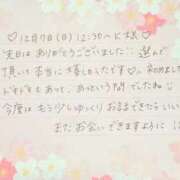 ♡12月7日(日) 12:30〜 K様♡
先日は ありがとうございました!! 選んで
頂いて本当に嬉しかったです♡ 初めまして
ドキドキもあって、あっという間でしたね
今度は もう少しゆっくり お話できたらいい
またお会いできますように